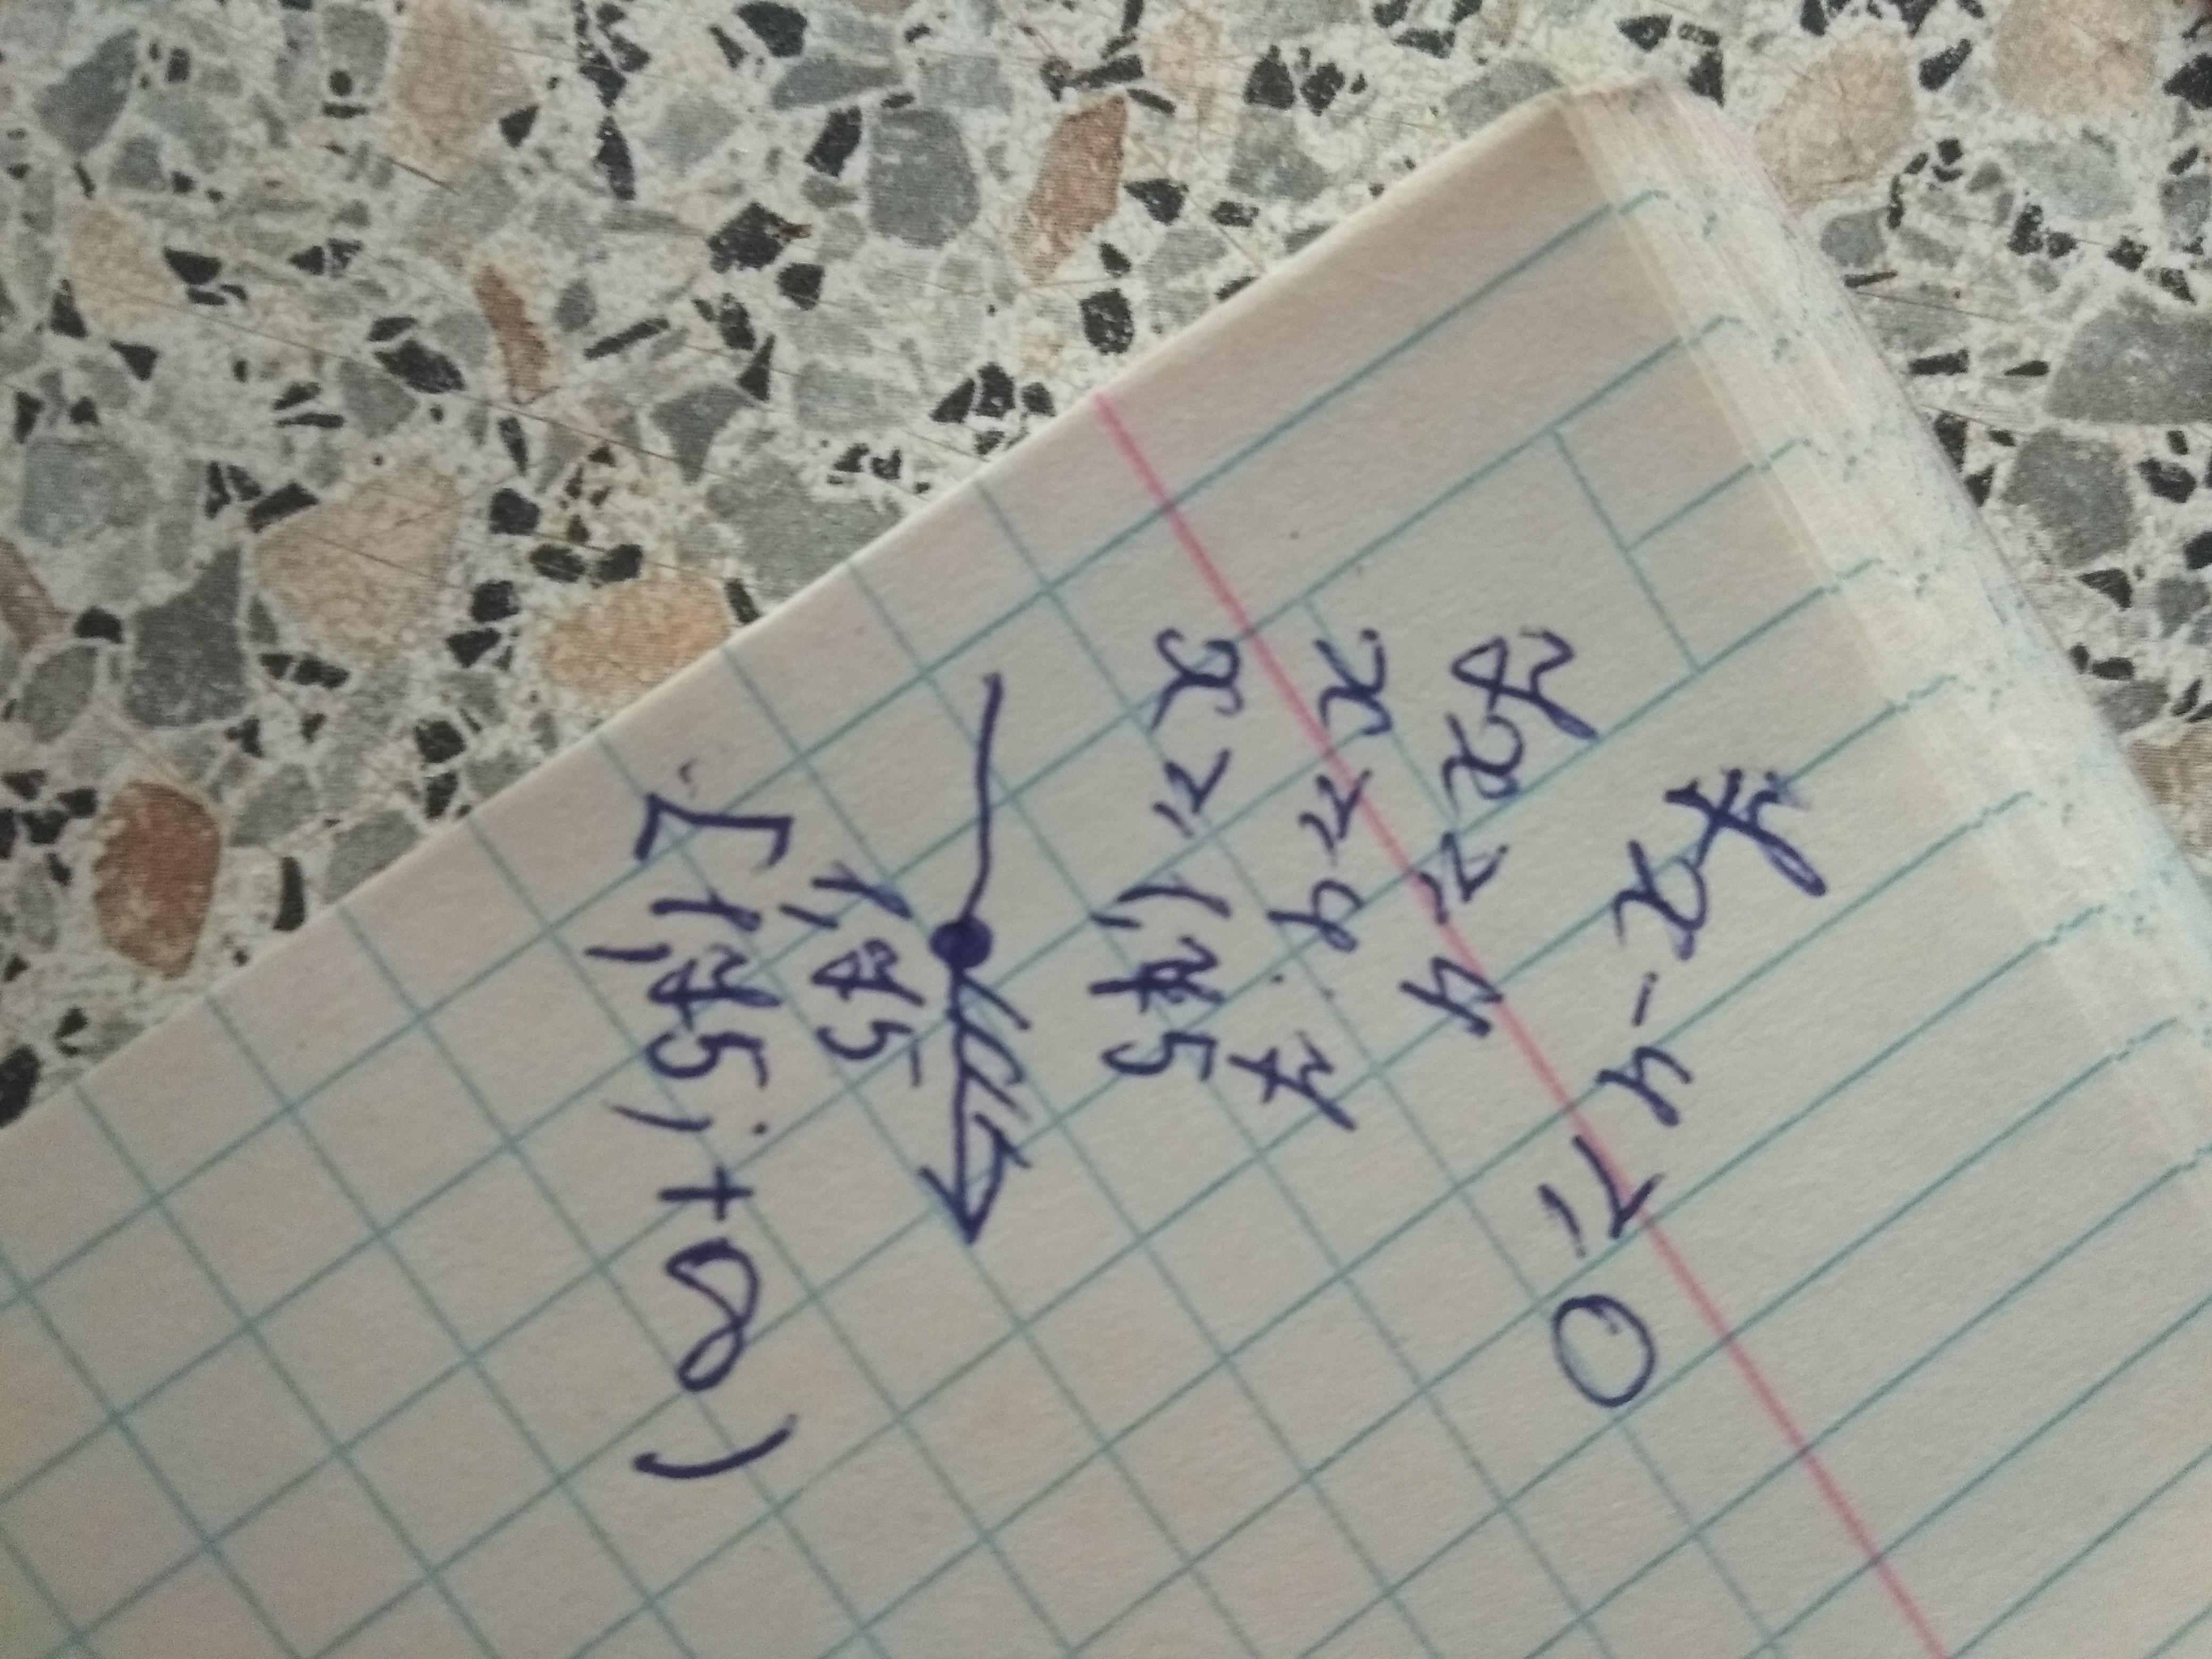 7x - 4 ≥ 0
7x ≥ 4
x ≥ 4 : 7
x ≥ 1,75
1,75
[1,75; +∞)